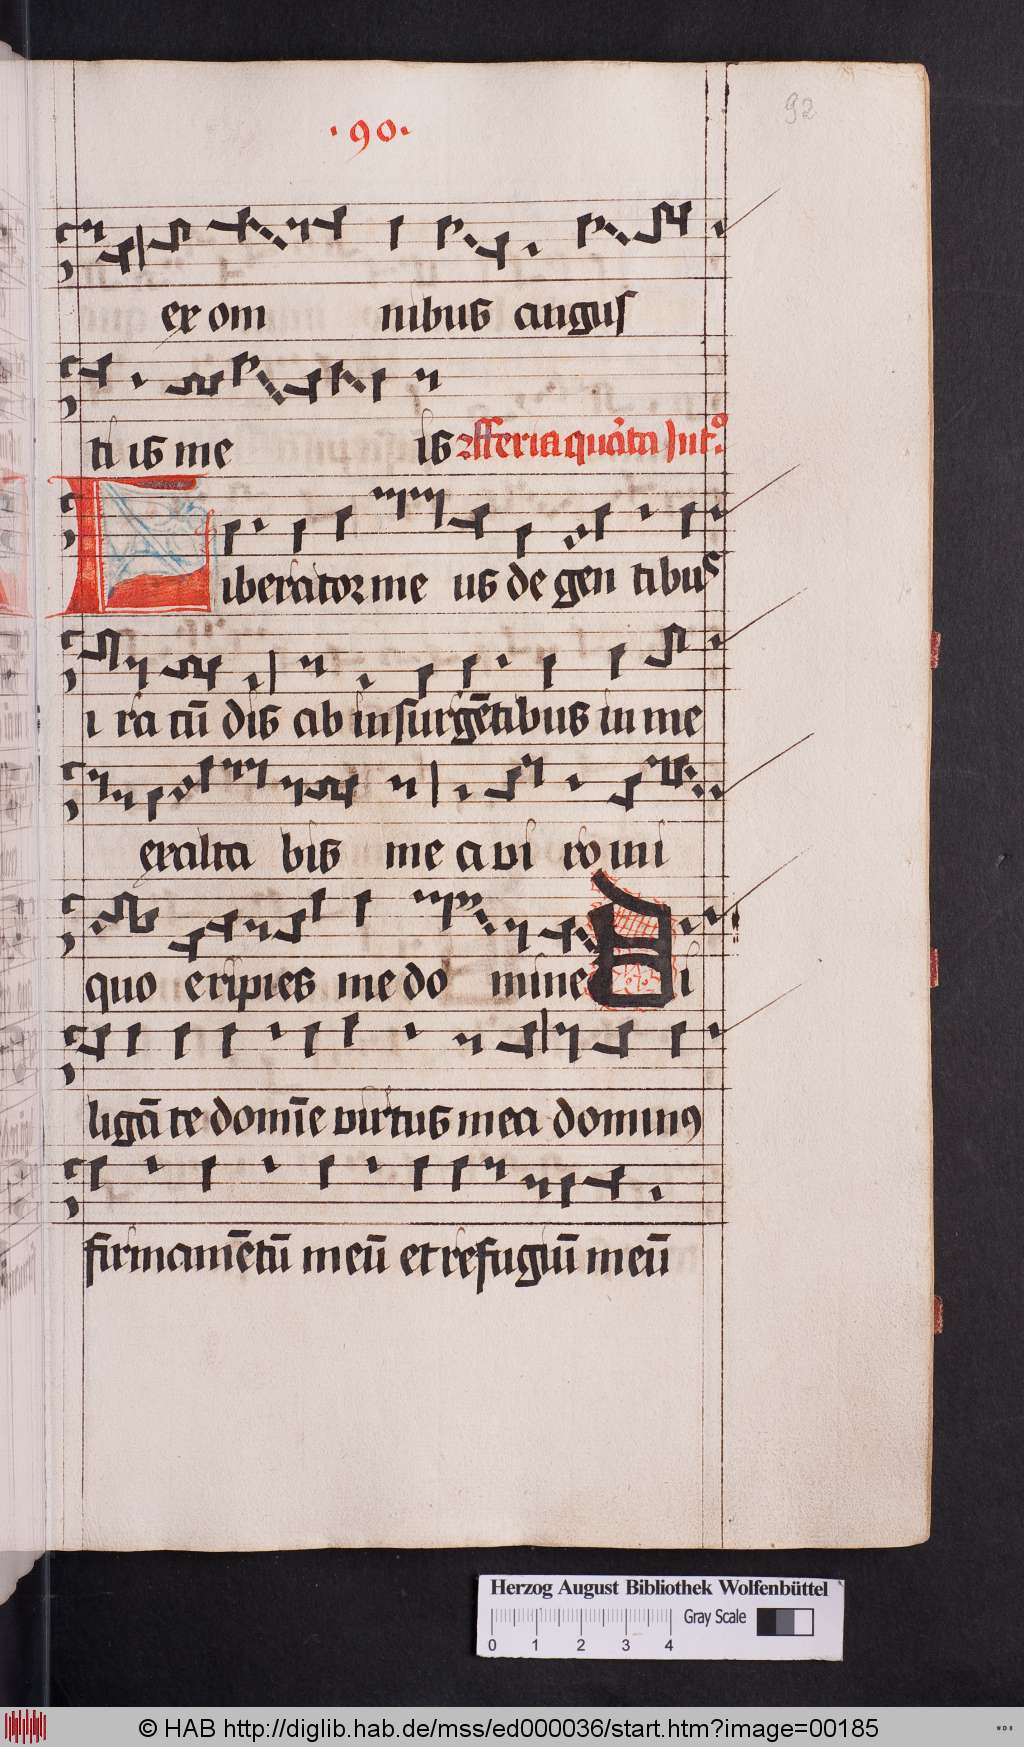 ·90·
92
ex om nibus angus
ti is me is feria quarta Int.º
Liberator me us de gen tibus
i ra cū dis ab insurgētibus in me
exalta bis me a vi ro ini
quo eripies me do mine Di
ligā te domīe virtus mea dominꝰ
firmamētū meū et refugiū meū
Herzog August Bibliothek Wolfenbüttel
Gray Scale
0 1 2 3 4
© HAB http://diglib.hab.de/mss/ed000036/start.htm?image=00185